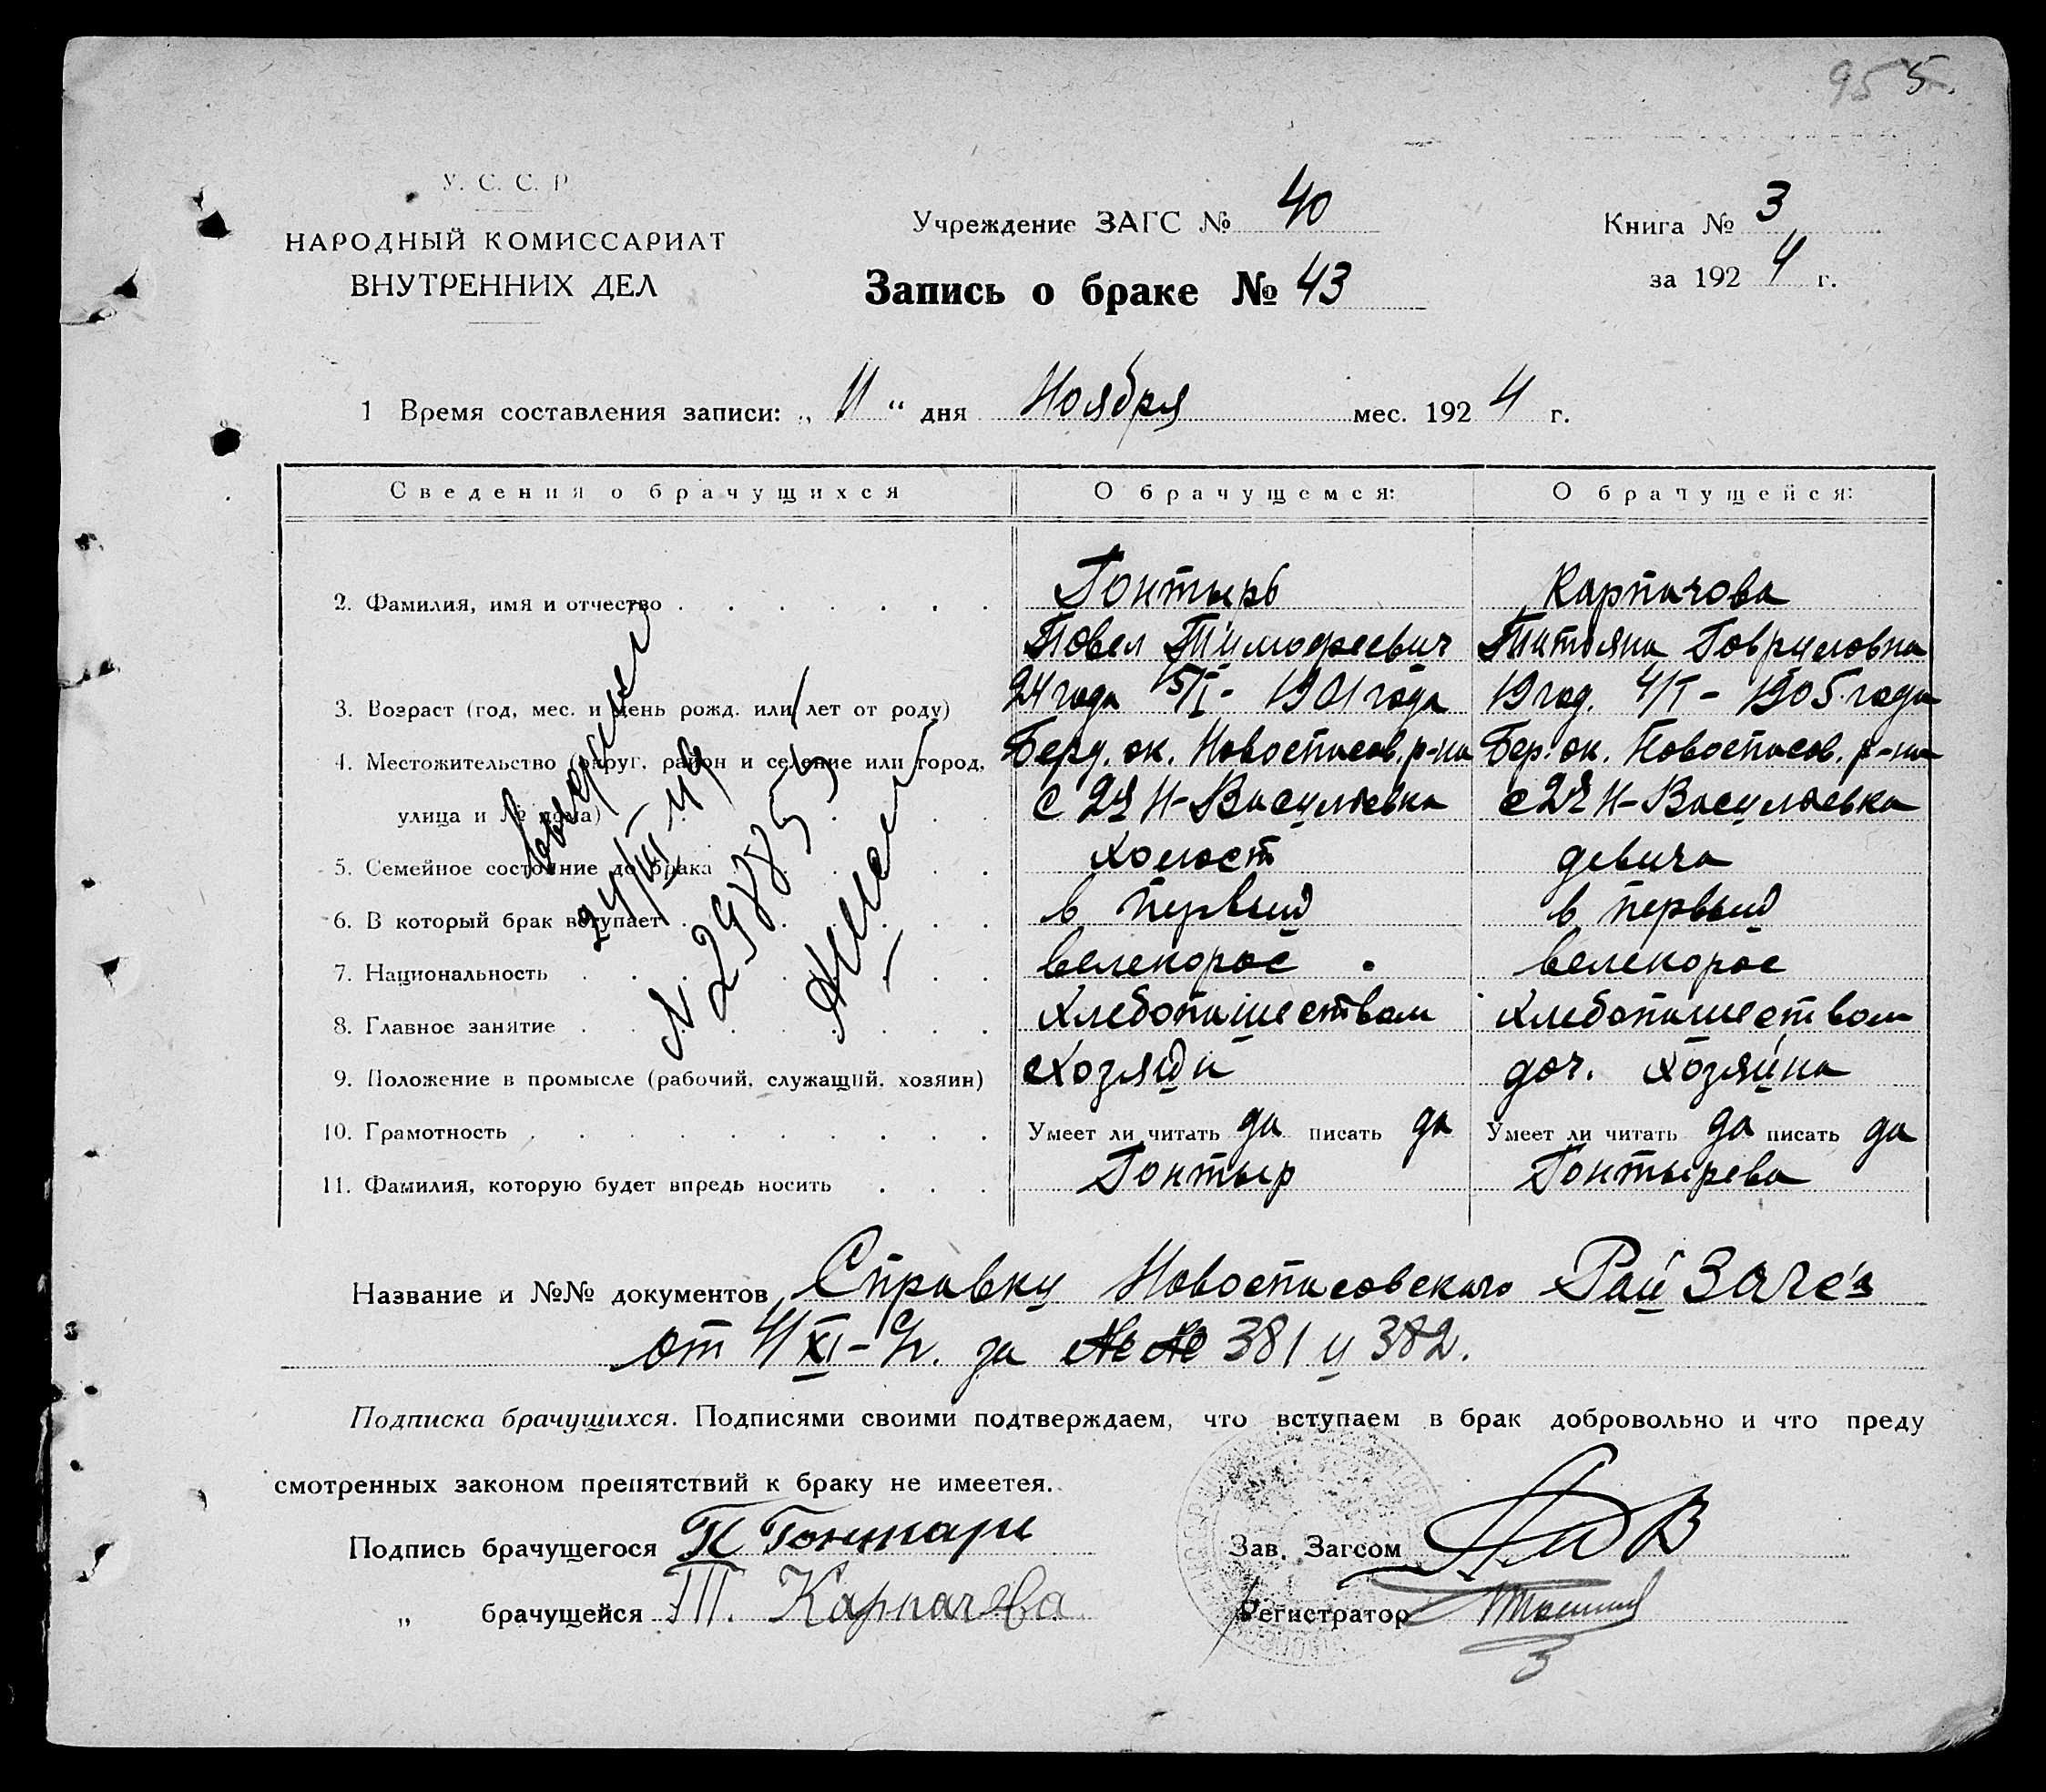 95 5.
У. С. С. Р
НАРОДНЫЙ КОМИССАРИАТ
ВНУТРЕННИХ ДЕЛ
Учреждение ЗАГС № 40
Запись о браке № 43
Книга № 3
за 1924 г.
1 Время составления записи: „ 11 “ дня Ноября мес. 1924 г.
Сведения о брачущихся О брачущемся: О брачущейся:
2. Фамилия, имя и отчество Гонтырь Карпачова
Повел Тимофеевич Татяна Говриловна
3. Возраст (год, мес. и день рожд. или лет от роду) 24 года 15/I - 1901 года 19 год. 4/I - 1905 года
4. Местожительство (округ, район и селение или город, Берд. ок. Новоспасов. р-на Бер. ок. Новоспасов. р-на
улица и № дома) с 2я Н-Васильевка с 2я Н-Васильевка
5. Семейное состояние до брака холост девица
6. В который брак вступает в первый в первый
7. Национальность велекорос велекорос
8. Главное занятие хлебопашеством хлебопашеством
9. Положение в промысле (рабочий, служащий, хозяин) хозяин доч. хозяина
10. Грамотность Умеет ли читать да писать да Умеет ли читать да писать да
11. Фамилия, которую будет впредь носить Гонтыр Гонтырева
24/III 49
N 298853
Название и №№ документов Справки Новоспасовского РайЗагса
от 4/XI - за №№ 381 и 382.
Подписка брачущихся. Подписями своими подтверждаем, что вступаем в брак добровольно и что преду
смотренных законом препятствий к браку не имеетея.
Подпись брачущегося П Гонтарь
Зав. Загсом
„ брачущейся Т. Карпачева
Регистратор